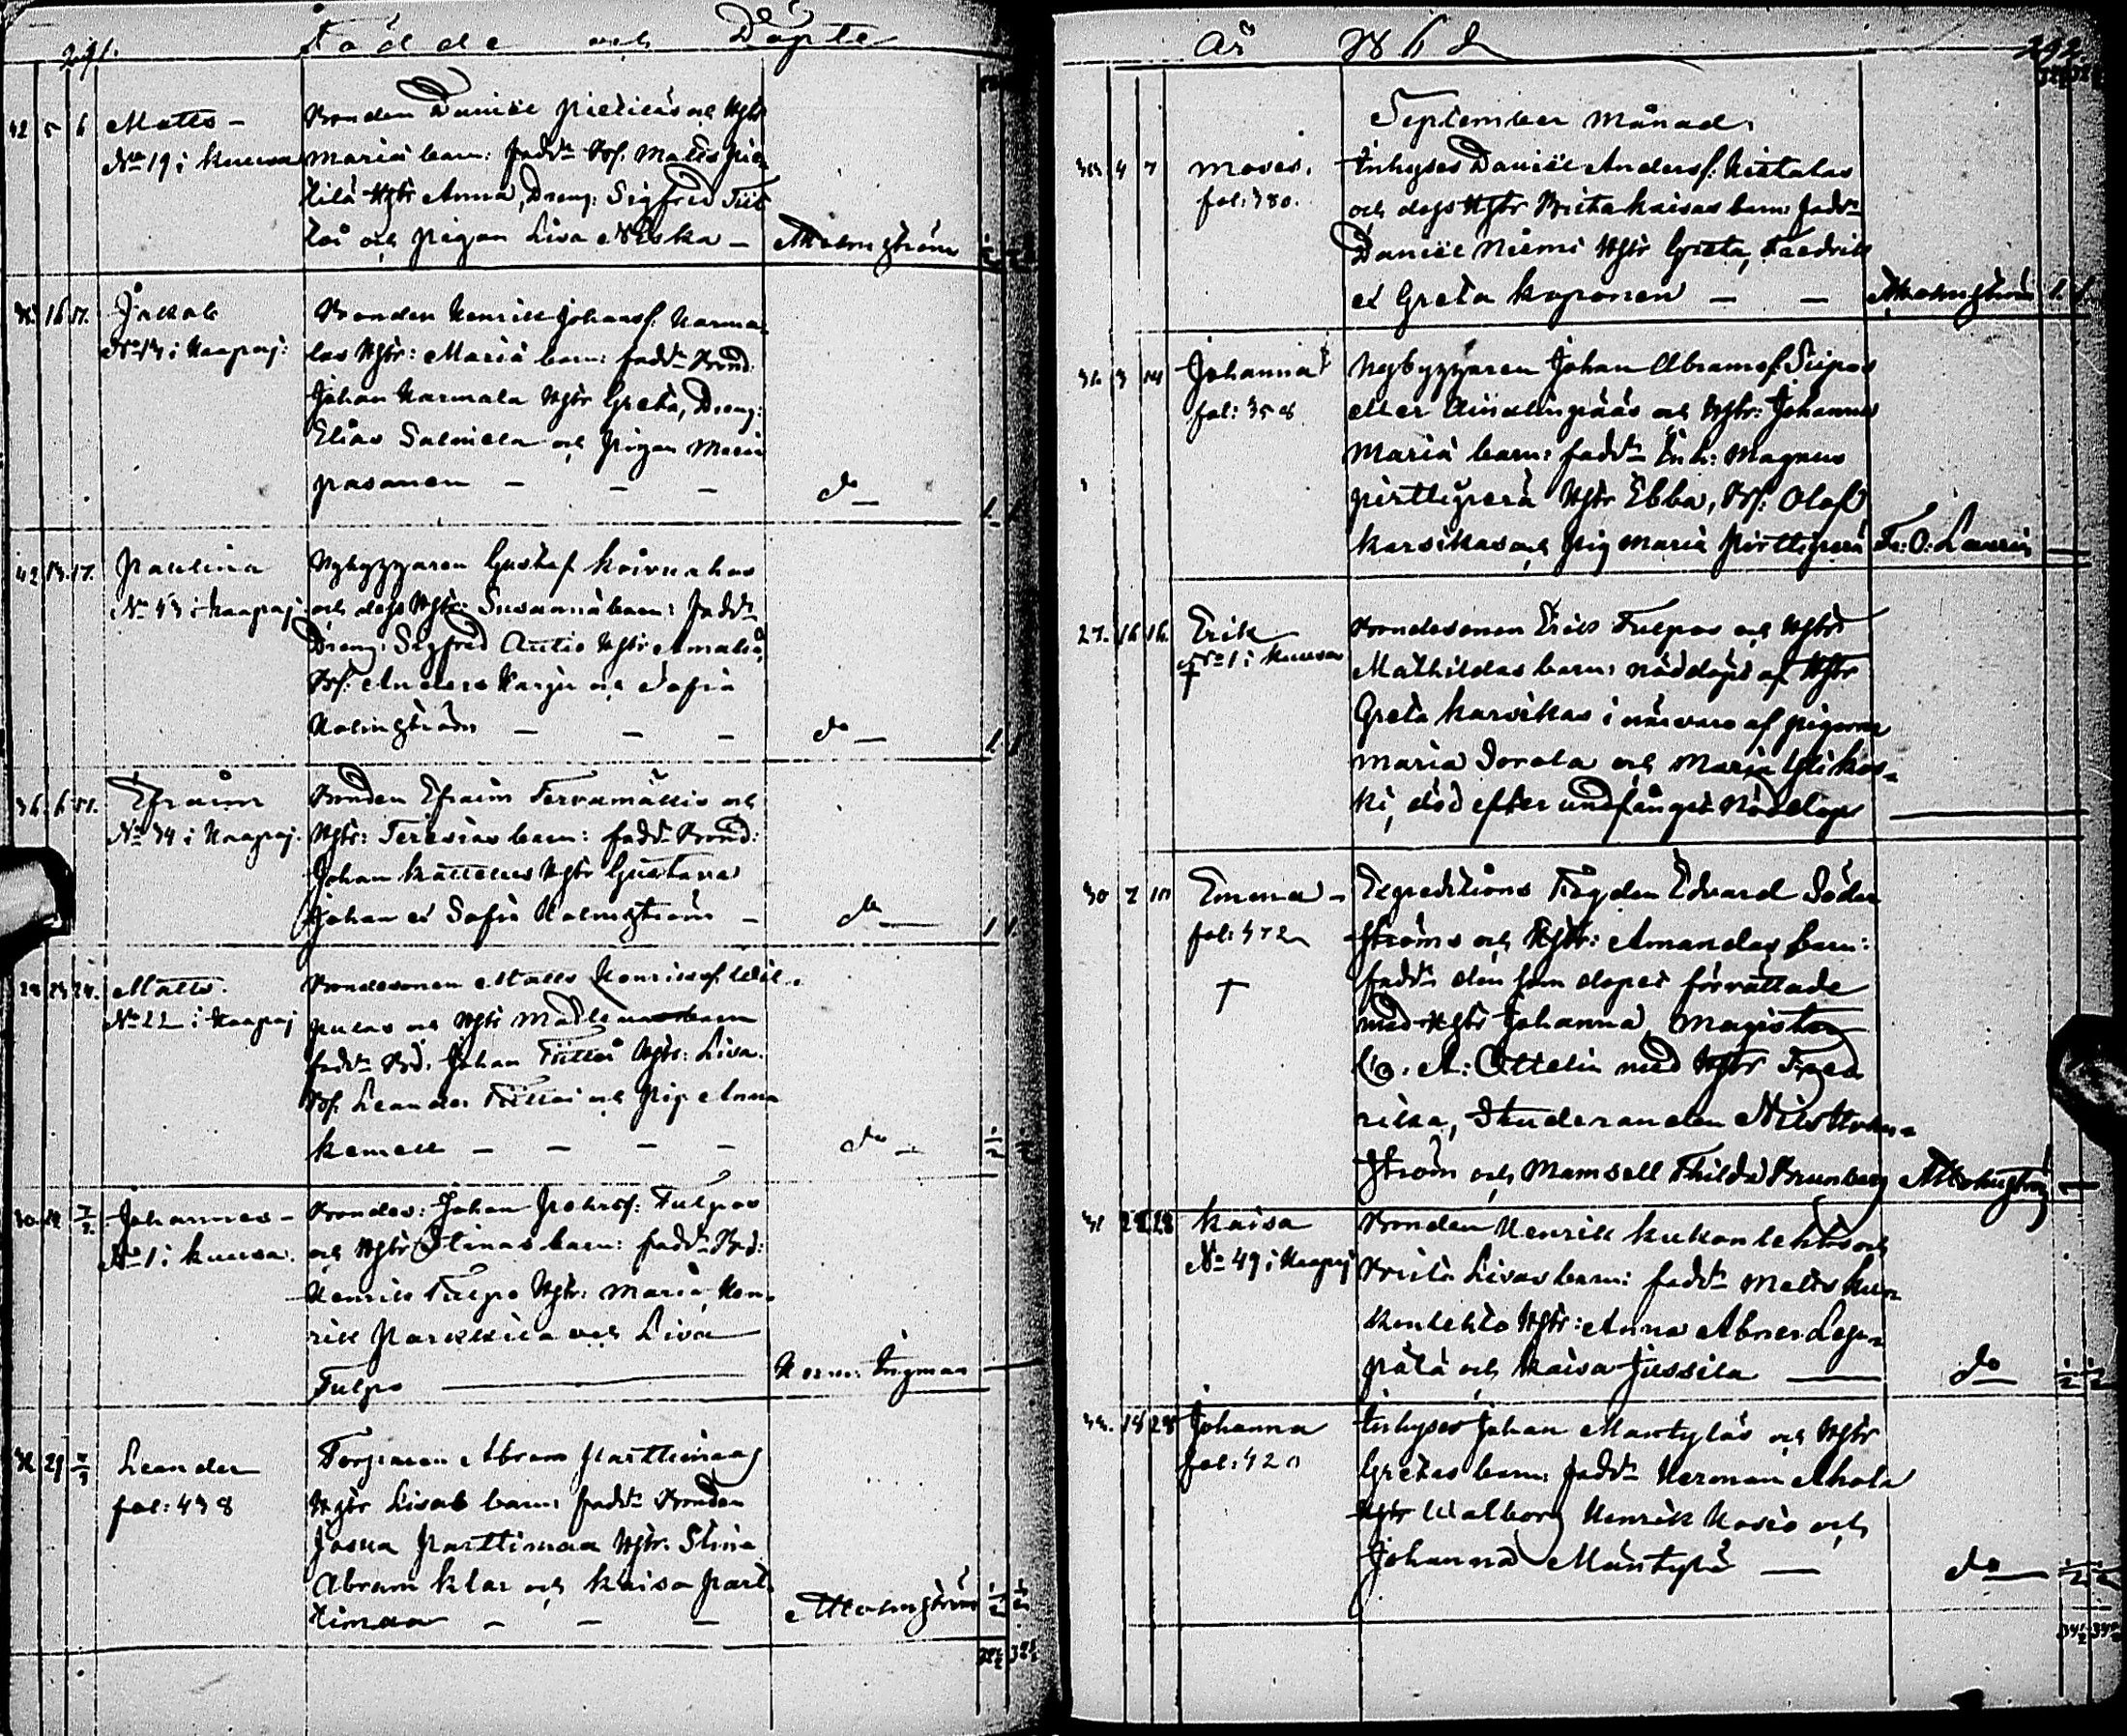 291.
Födde och Döpte
42 5 6 Matts -
No 19 i Kuusa
Bonden Daniel Pietiläs och Hstr
Maria barn: fadd. Bs. Matts Pie-
tilä Hstr Anna, Dreng: Sigfred Tiit
to och pigan Lisa Niska -
A Holmström
16 Jakob
i Haapaj:
Bonden Henrik Johanss. Harma-
las Hstr: Maria barn: fadd. Bond:
Johan Harmala Hstr Greta, Dreng:
Elias Salmela och pigan Maria
Pasanen - - -
do
42 Paulina
No 43 i Haapaj
Nybyggaren Gustaf Koivuahos
och dess Hstr: Susanna barn: fadd.
Dreng: Sigfred Autio Hstr Amalia,
Bs: Anders Harju och Sofia
Holmström - - -
do
36 6 Efraim
No 34 i Haapaj.
Bonden Efraim Tervamäkis och
Hstr: Teresias barn: fadd. Bond:
Johan Hstr Gustava
Johan et Sofia Holmström -
do
24. Matts.
No 22 i Haapaj
Bondesonen Matts Henrikss.
och Hstr Madlena barn
fadd. Bd. Johan Hstr: Lisa.
Bs. Leander och Pig Anna
Kemell - - - -
do
Johannes -
No 1 i Kuusa.
Bondes: Johan Pehrss: Tulpos
och Hstr Stinas barn: fadd. Bd:
Henrik Tulpo Hstr: Maria, Hen-
rik Parkkila och Lisa
Tulpo
Herm: Ingman
29 Leander
fol: 438
Torparen Abram Parttimaas
Hstr Lisas barn: fadd. Bonden
Josua Parttimaa Hstr: Stina
Abram Klar och Kaisa Part-
timaa - - -
A Holmström
År 186
292.
September Månad.
4 7 Moses.
fol: 380.
Inhyses Daniel Anderss:
och dess Hstr Brita Kaisas barn: fadd.
Daniel Niemi Hstr Greta, Fredrik
et Greta Koponen - -
A Holmström
3 14 Johanna
fol: 358
Nybyggaren Johan Abramss. Siipos
eller och Hstr: Johanna
Maria barn: fadd. Inh: Magnus
Pirttiperä Hstr Ebba, Bs: Olof
Karsikas och Pig Maria Pirttiperä
Fr: O: Laurin
27. 16 16. Erik
No 1 i Kuusa
†
Bondesonen Erik Tulpos och Hstr
Mathildas barn: nöddöpt af Hstr
Greta Karsikas i närvaro af pigorna
Maria Sorola och Maria Ylikos-
ki, död efter undfånget Nöddop
30 2 10 Emma -
fol: 472
†
Expeditions Fogden Edvard Söder
ströms och Hstr: Amandas barn:
fadd. den som dopet förrättade
med Hstr Johanna, Magister
A: Ottelin med Hstr Fred
rika, Studeranden Nils Holm-
ström och Mamsell Thilda Brunberg
A Holmström
28 Kaisa
No 49 i Haapaj
Bonden Henrik Kukonlehtos och
Brita Lisas barn: fadd. Matts Ku-
konlehto Hstr: Anna Abner Lepi-
och Kaisa Jussila
do
18 28 Johanna
fol: 420
Inhyses Johan Mäntyläs och Hstr
Gretas barn: fadd. Herman Ahola
Hstr Walborg Henrik och
Johanna Mäntylä -
do